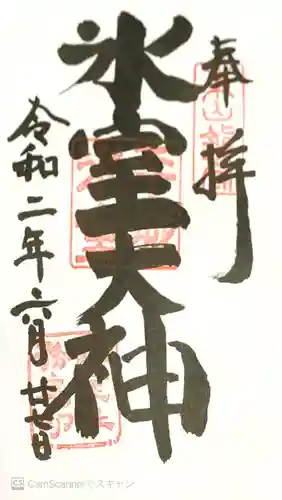 奉拝
氷室大神
令和二年六月廿七日
CS CamScannerでスキャン